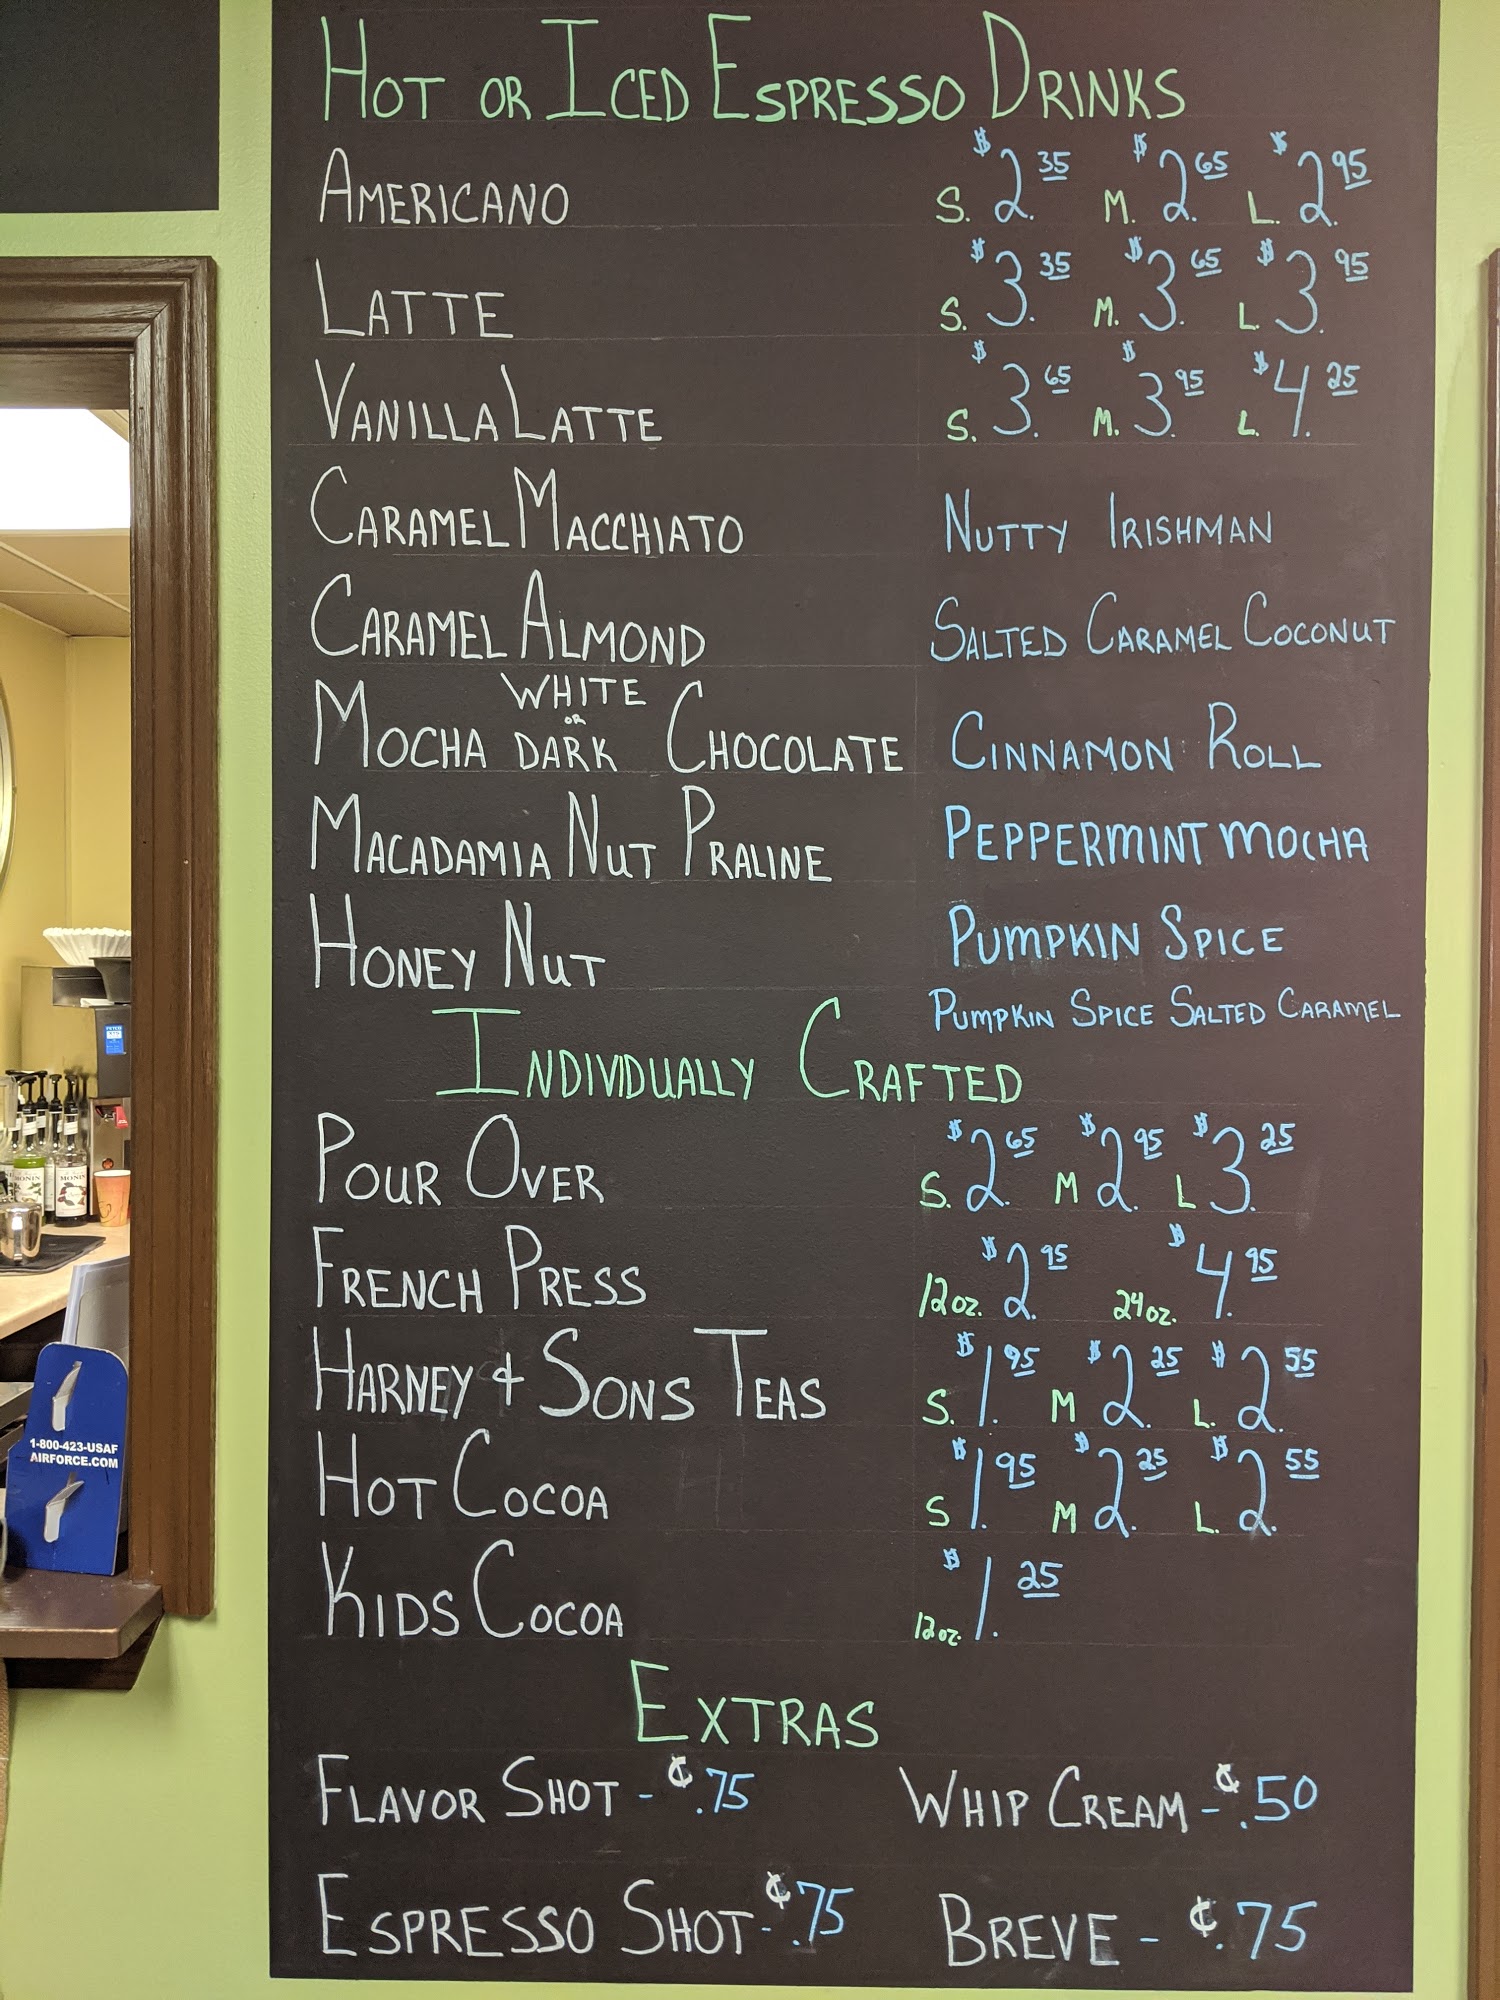 HOT OR ICED ESPRESSO DRINKS
AMERICANO S. $2.35 M. $2.65 L. $2.95
LATTE S. $3.35 M. $3.65 L. $3.95
VANILLA LATTE S. $3.65 M. $3.95 L. $4.25
CARAMEL MACCHIATO NUTTY IRISHMAN
CARAMEL ALMOND SALTED CARAMEL COCONUT
MOCHA WHITE OR DARK CHOCOLATE CINNAMON ROLL
MACADAMIA NUT PRALINE PEPPERMINT MOCHA
HONEY NUT PUMPKIN SPICE
PUMPKIN SPICE SALTED CARAMEL
INDIVIDUALLY CRAFTED
POUR OVER S. $2.65 M $2.95 L $3.25
FRENCH PRESS 12oz. $2.95 24oz. $4.95
HARNEY & SONS TEAS S. $1.95 M $2.25 L. $2.55
HOT COCOA S $1.95 M $2.25 L. $2.55
KIDS COCOA 12oz. $1.25
EXTRAS
FLAVOR SHOT - ¢.75 WHIP CREAM - ¢.50
ESPRESSO SHOT - ¢.75 BREVE - ¢.75
MONIN
MONIN
1-800-423-USAF
AIRFORCE.COM